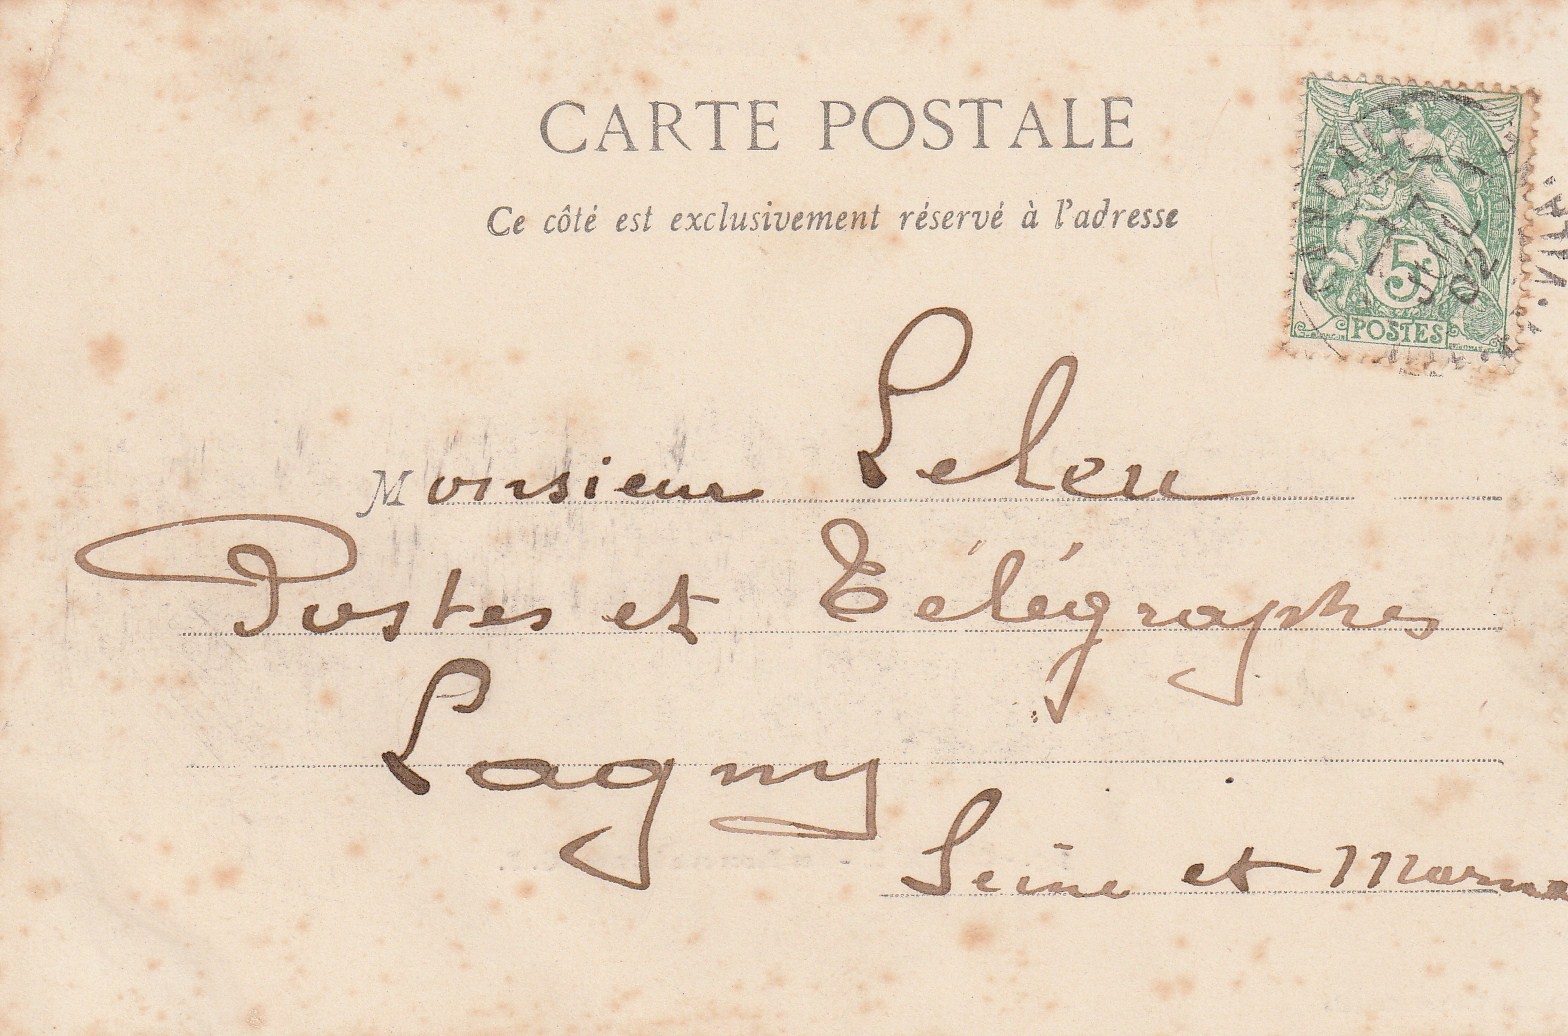 CARTE POSTALE
Ce côté est exclusivement réservé à l'adresse
CANCALE
7
JUIL
02
5
POSTES
Monsieur Leleu
Postes et Télégraphes
Lagny
Seine et Marne